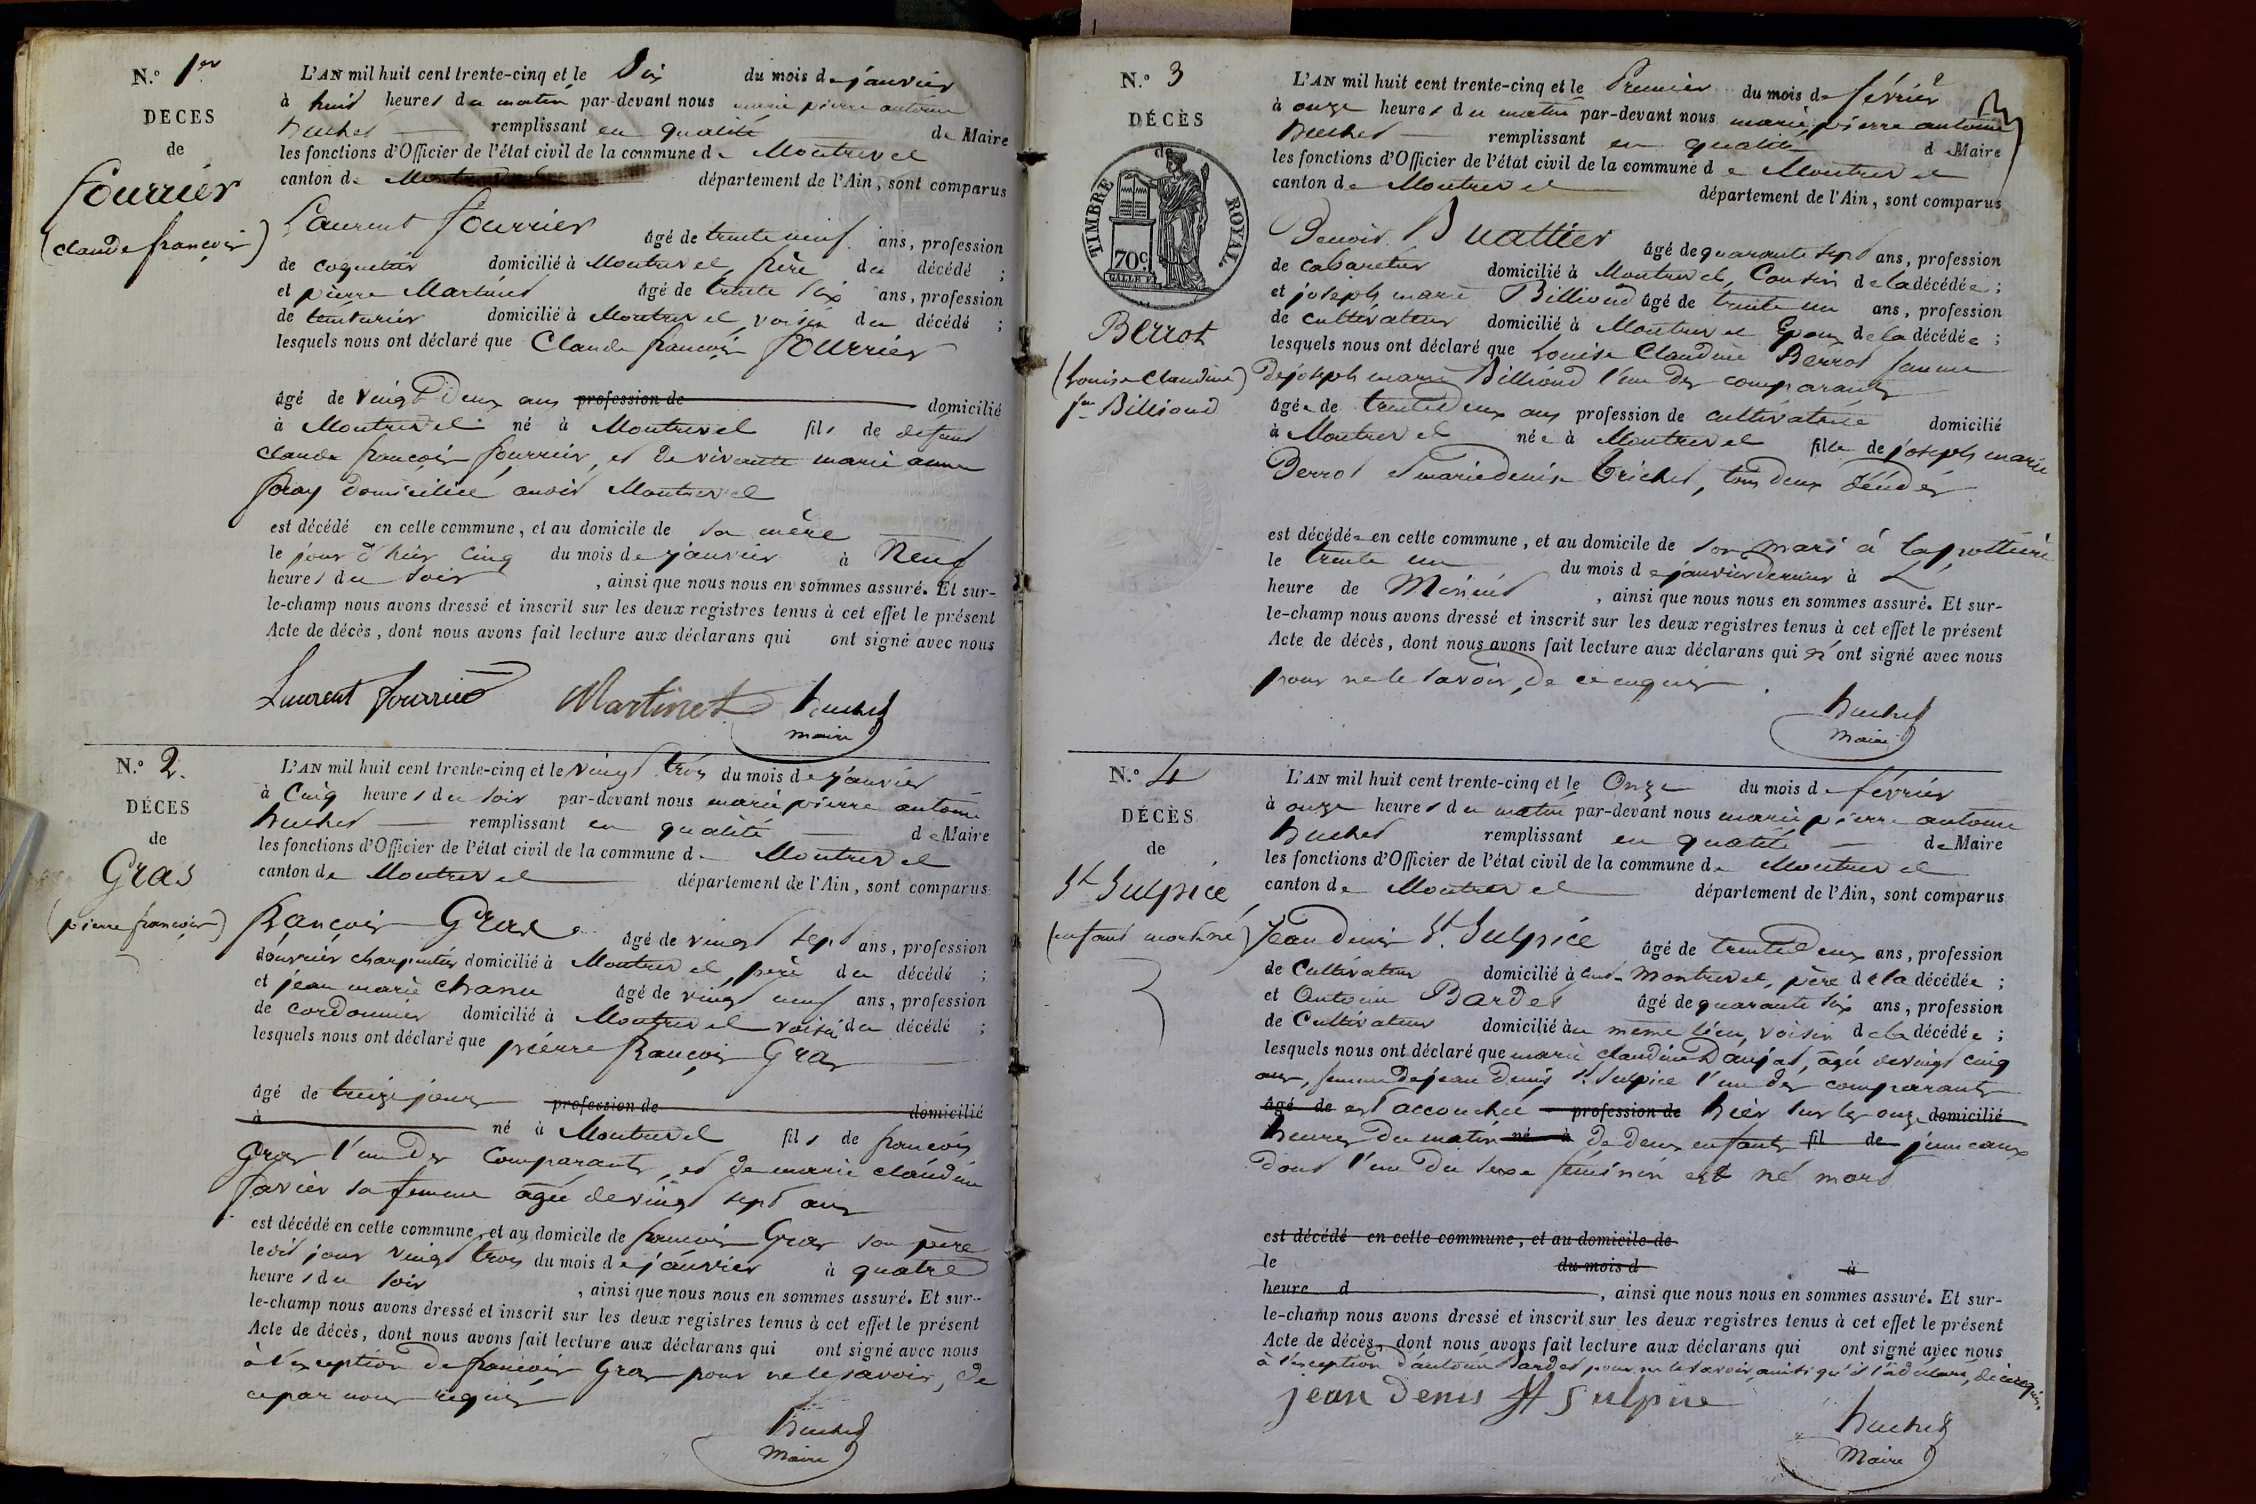 N.° 1er
DÉCES
de
fourrier
(claude françois)
L'AN mil huit cent trente-cinq et le Six du mois de janvier
à huit heures du matin par-devant nous marie pierre antoine
huchet remplissant en qualité de Maire
les fonctions d'Officier de l'état civil de la commune de Montrevel
canton de Montrevel département de l'Ain, sont comparus
Laurent fourrier âgé de trente neuf ans, profession
de coquetier domicilié à Montrevel, frère du décédé ;
et pierre Martinet âgé de trente six ans, profession
de teinturier domicilié à Montrevel voisin du décédé ;
lesquels nous ont déclaré que Claude françois fourrier
âgé de vingt Deux ans profession de domicilié
à Montrevel né à Montrevel fils de defunt
claude françois fourrier, et de vivante marie anne
foray domiciliée audit Montrevel
est décédé en cette commune, et au domicile de sa mère
le jour d'hier cinq du mois de janvier à Neuf
heures du soir, ainsi que nous nous en sommes assuré. Et sur-
le-champ nous avons dressé et inscrit sur les deux registres tenus à cet effet le présent
Acte de décès, dont nous avons fait lecture aux déclarans qui ont signé avec nous
Laurent fourrier Martinet huchet
maire
N.° 2.
DÉCES
de
Gras
(pierre françois)
L'AN mil huit cent trente-cinq et le vingt trois du mois de janvier
à Cinq heures du soir par-devant nous marie pierre antoine
huchet remplissant en qualité de Maire
les fonctions d'Officier de l'état civil de la commune de Montrevel
canton de Montrevel département de l'Ain, sont comparus
françois Gras âgé de vingt sept ans, profession
d'ouvrier charpentier domicilié à Montrevel, père du décédé ;
et jean marie chanu âgé de vingt neuf ans, profession
de cordonnier domicilié à Montrevel voisin du décédé ;
lesquels nous ont déclaré que pierre françois Gras
âgé de treize jours profession de domicilié
à né à Montrevel fils de françois
Gras l'un des Comparants, et de marie claudine
favier sa femme agée de vingt sept ans
est décédé en cette commune, et au domicile de françois Gras son père
ledit jour vingt trois du mois de janvier à quatre
heures du soir, ainsi que nous nous en sommes assuré. Et sur-
le-champ nous avons dressé et inscrit sur les deux registres tenus à cet effet le présent
Acte de décès, dont nous avons fait lecture aux déclarans qui ont signé avec nous
à l'exception de françois Gras pour ne le savoir, de
ce par nous requis
huchet
Maire
N.° 3
DÉCÈS
de
TIMBRE ROYAL.
70c.
Berrot
(Louise Claudine)
fe Billioud
L'AN mil huit cent trente-cinq et le Premier du mois de février
à onze heures du matin par-devant nous marie pierre antoine
huchet remplissant en qualité de Maire
les fonctions d'Officier de l'état civil de la commune de Montrevel
canton de Montrevel département de l'Ain, sont comparus
Benoit Buattier âgé de quarante sept ans, profession
de cabaretier domicilié à Montrevel, Cousin de la décédée ;
et joseph marie Billioud âgé de trente un ans, profession
de cultivateur domicilié à Montrevel Epoux de la décédée ;
lesquels nous ont déclaré que Louise Claudine Berrot femme
de joseph marie Billioud l'un des comparants
âgée de trente deux ans profession de cultivatrice domicilié
à Montrevel née à Montrevel fille de joseph marie
Berrot et marie denise Trichet, tous deux Décédés
est décédée en cette commune, et au domicile de son mari à la poterie
le trente un du mois de janvier dernier à L'
heure de Minuit, ainsi que nous nous en sommes assuré. Et sur-
le-champ nous avons dressé et inscrit sur les deux registres tenus à cet effet le présent
Acte de décès, dont nous avons fait lecture aux déclarans qui n'ont signé avec nous
pour ne le savoir, de ce enquis
huchet
Maire
N.° 4
DÉCÈS
de
St Sulpice
(enfant mort né)
L'AN mil huit cent trente-cinq et le Onze du mois de février
à onze heures du matin par-devant nous marie pierre antoine
huchet remplissant en qualité de Maire
les fonctions d'Officier de l'état civil de la commune de Montrevel
canton de Montrevel département de l'Ain, sont comparus
Jean Denis St. Sulpice âgé de trente Deux ans, profession
de Cultivateur domicilié à Montrevel, père de la décédée ;
et Antoine Bardet âgé de quarante six ans, profession
de Cultivateur domicilié au même lieu, voisin de la décédée ;
lesquels nous ont déclaré que marie claudine Daujat, agée de vingt cinq
ans, femme de jean Denis St. Sulpice l'un des comparants
âgé de est accouchée profession de hier sur les onze domicilié
heures du matin né à de deux enfants fil de jumeaux
Dont l'un Du sexe féminin est né mort
est décédé en cette commune, et au domicile de
le du mois d à
heure d, ainsi que nous nous en sommes assuré. Et sur-
le-champ nous avons dressé et inscrit sur les deux registres tenus à cet effet le présent
Acte de décès, dont nous avons fait lecture aux déclarans qui ont signé avec nous
à l'exception d'antoine Bardet pour ne le savoir, ainsi qu'il l'a déclaré, de ce requis.
jean Denis St Sulpice
huchet
Maire